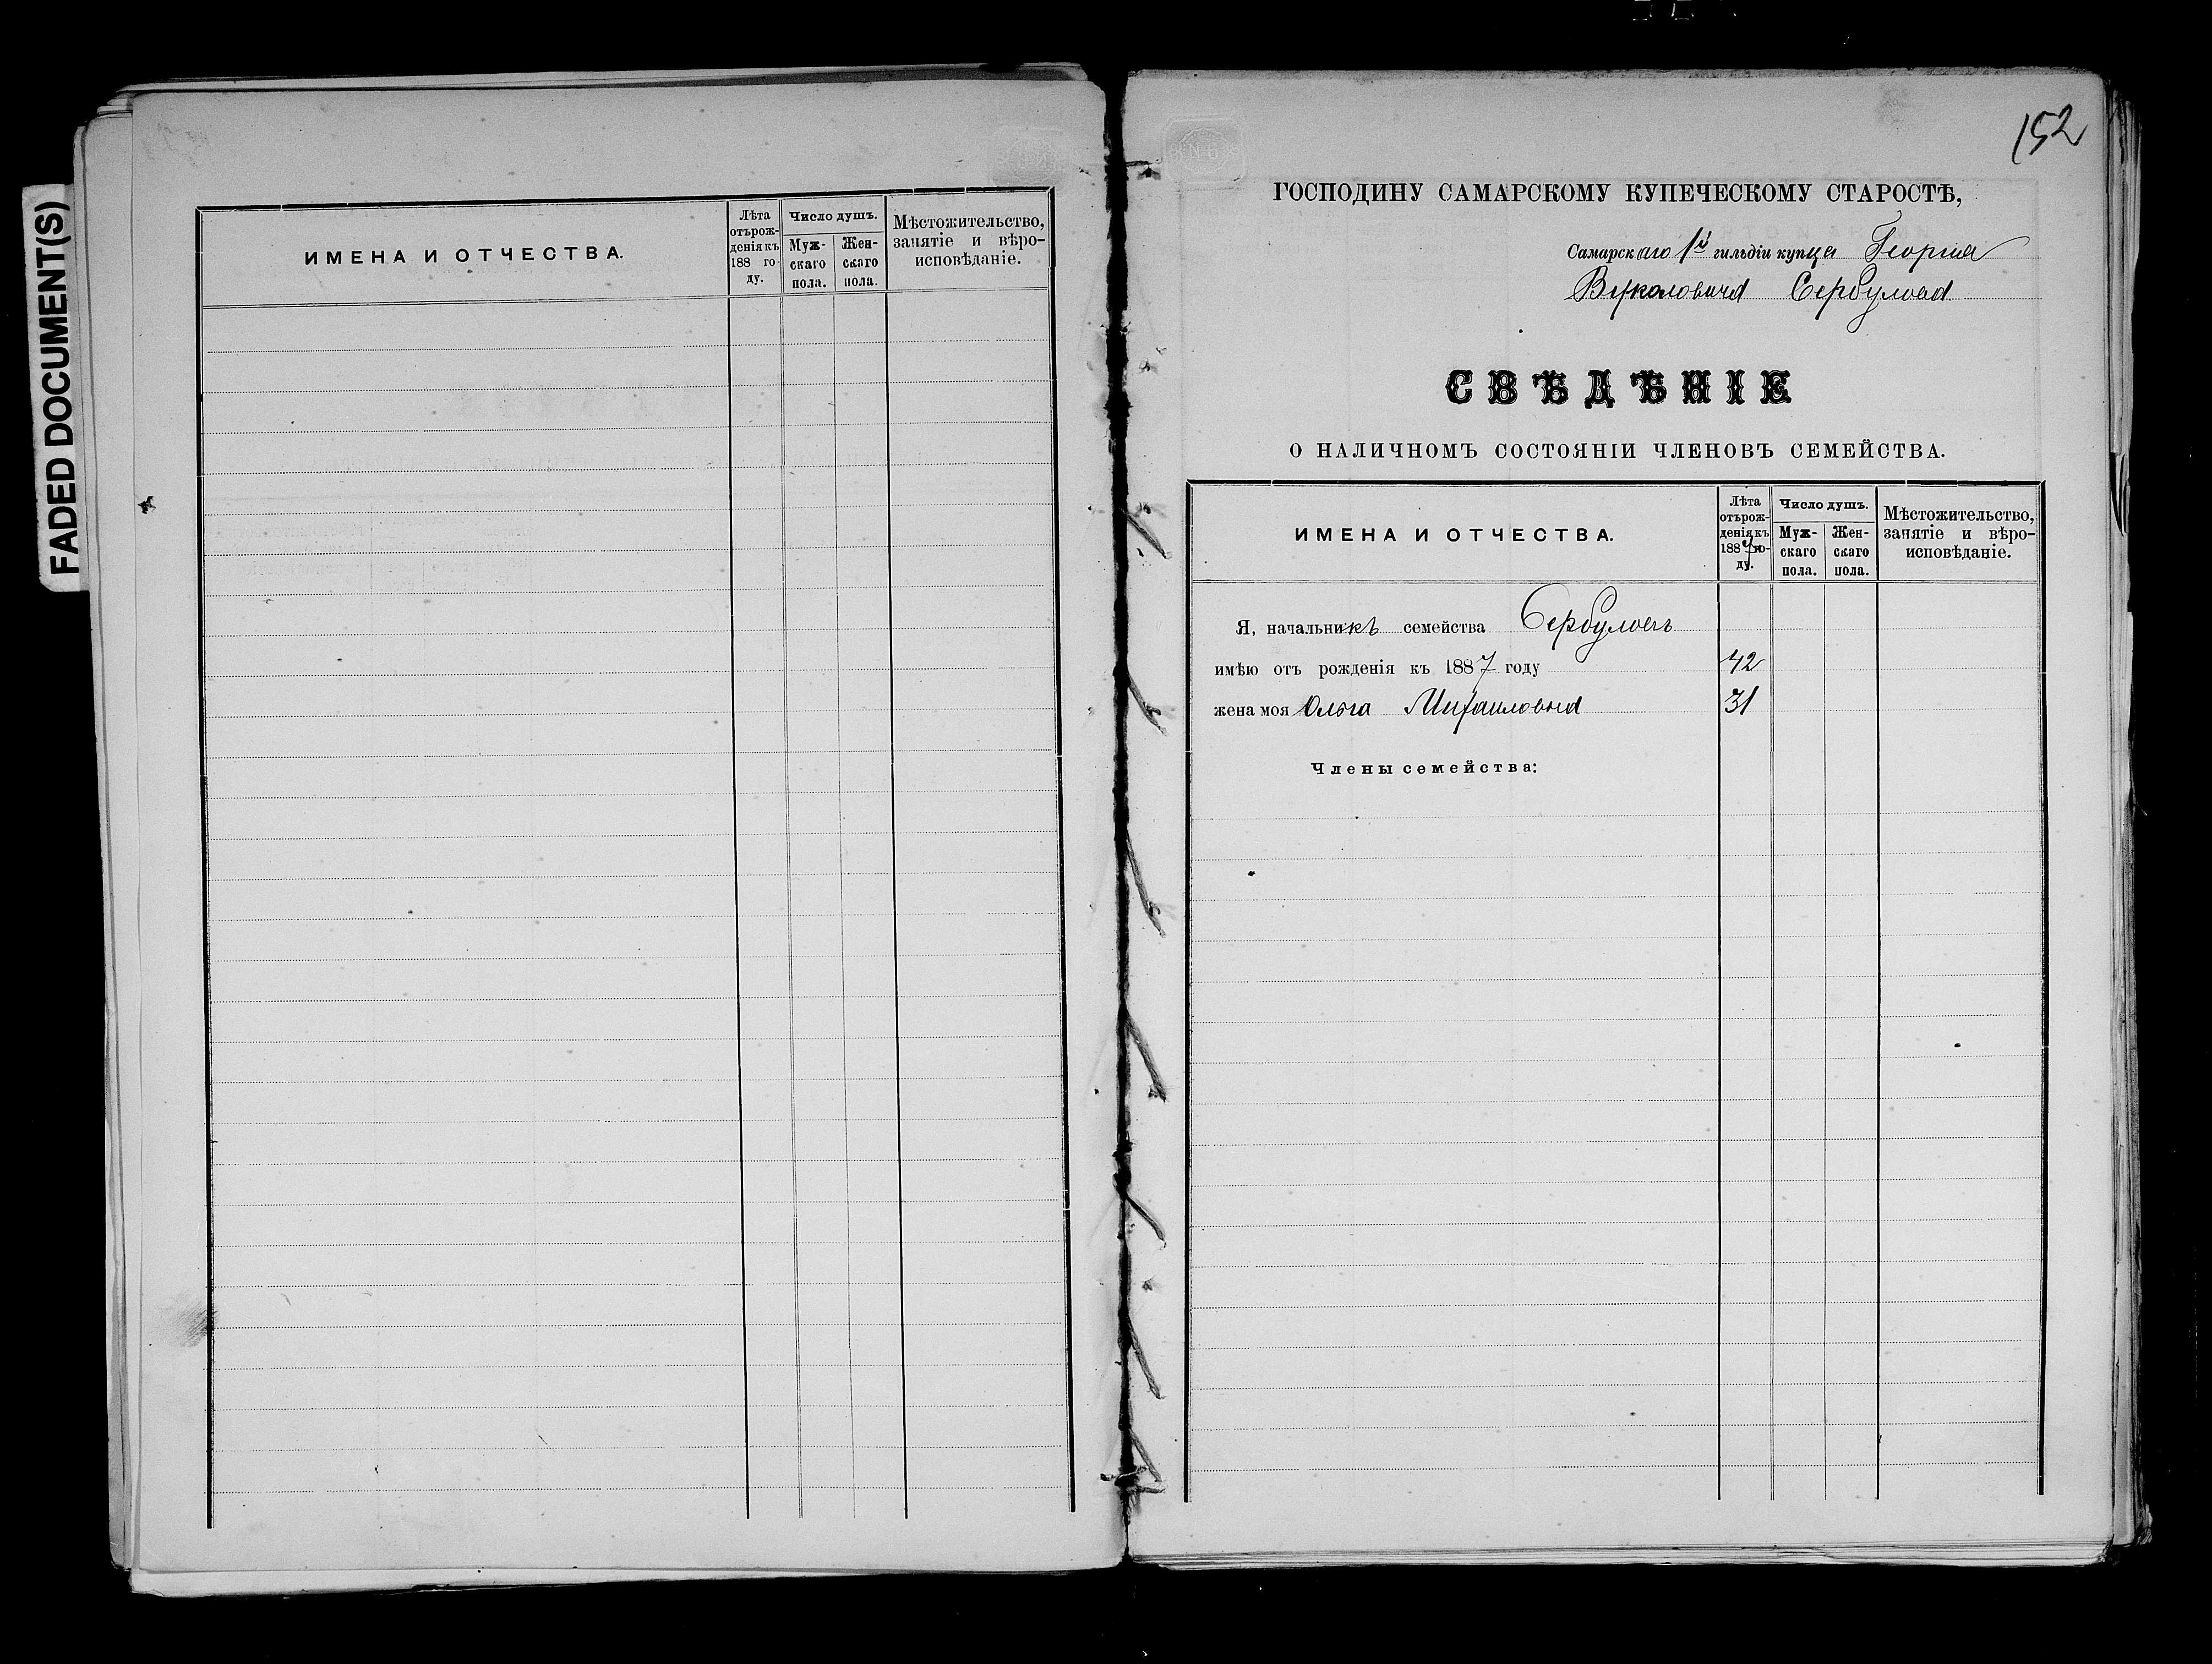 FADED DOCUMENT(S)
ИМЕНА И ОТЧЕСТВА.
Лѣта
отърож-
денія къ
188 го-
ду.
Число душъ.
Муж-
скаго
пола.
Жен-
скаго
пола.
Мѣстожительство,
занятіе и вѣро-
исповѣданіе.
152
ГОСПОДИНУ САМАРСКОМУ КУПЕЧЕСКОМУ СТАРОСТѢ,
Самарскаго 1й гильдіи купца Георгія
Вуколовича Сербулова
СВѢДѢНІЕ
О НАЛИЧНОМЪ СОСТОЯНІИ ЧЛЕНОВЪ СЕМЕЙСТВА.
ИМЕНА И ОТЧЕСТВА.
Лѣта
отърож-
денія къ
1887 го-
ду.
Число душъ.
Муж-
скаго
пола.
Жен-
скаго
пола.
Мѣстожительство,
занятіе и вѣро-
исповѣданіе.
Я, начальникъ семейства Сербуловъ
имѣю отъ рожденія къ 1887 году 42
жена моя Ольга Михаиловна 31
Члены семейства: